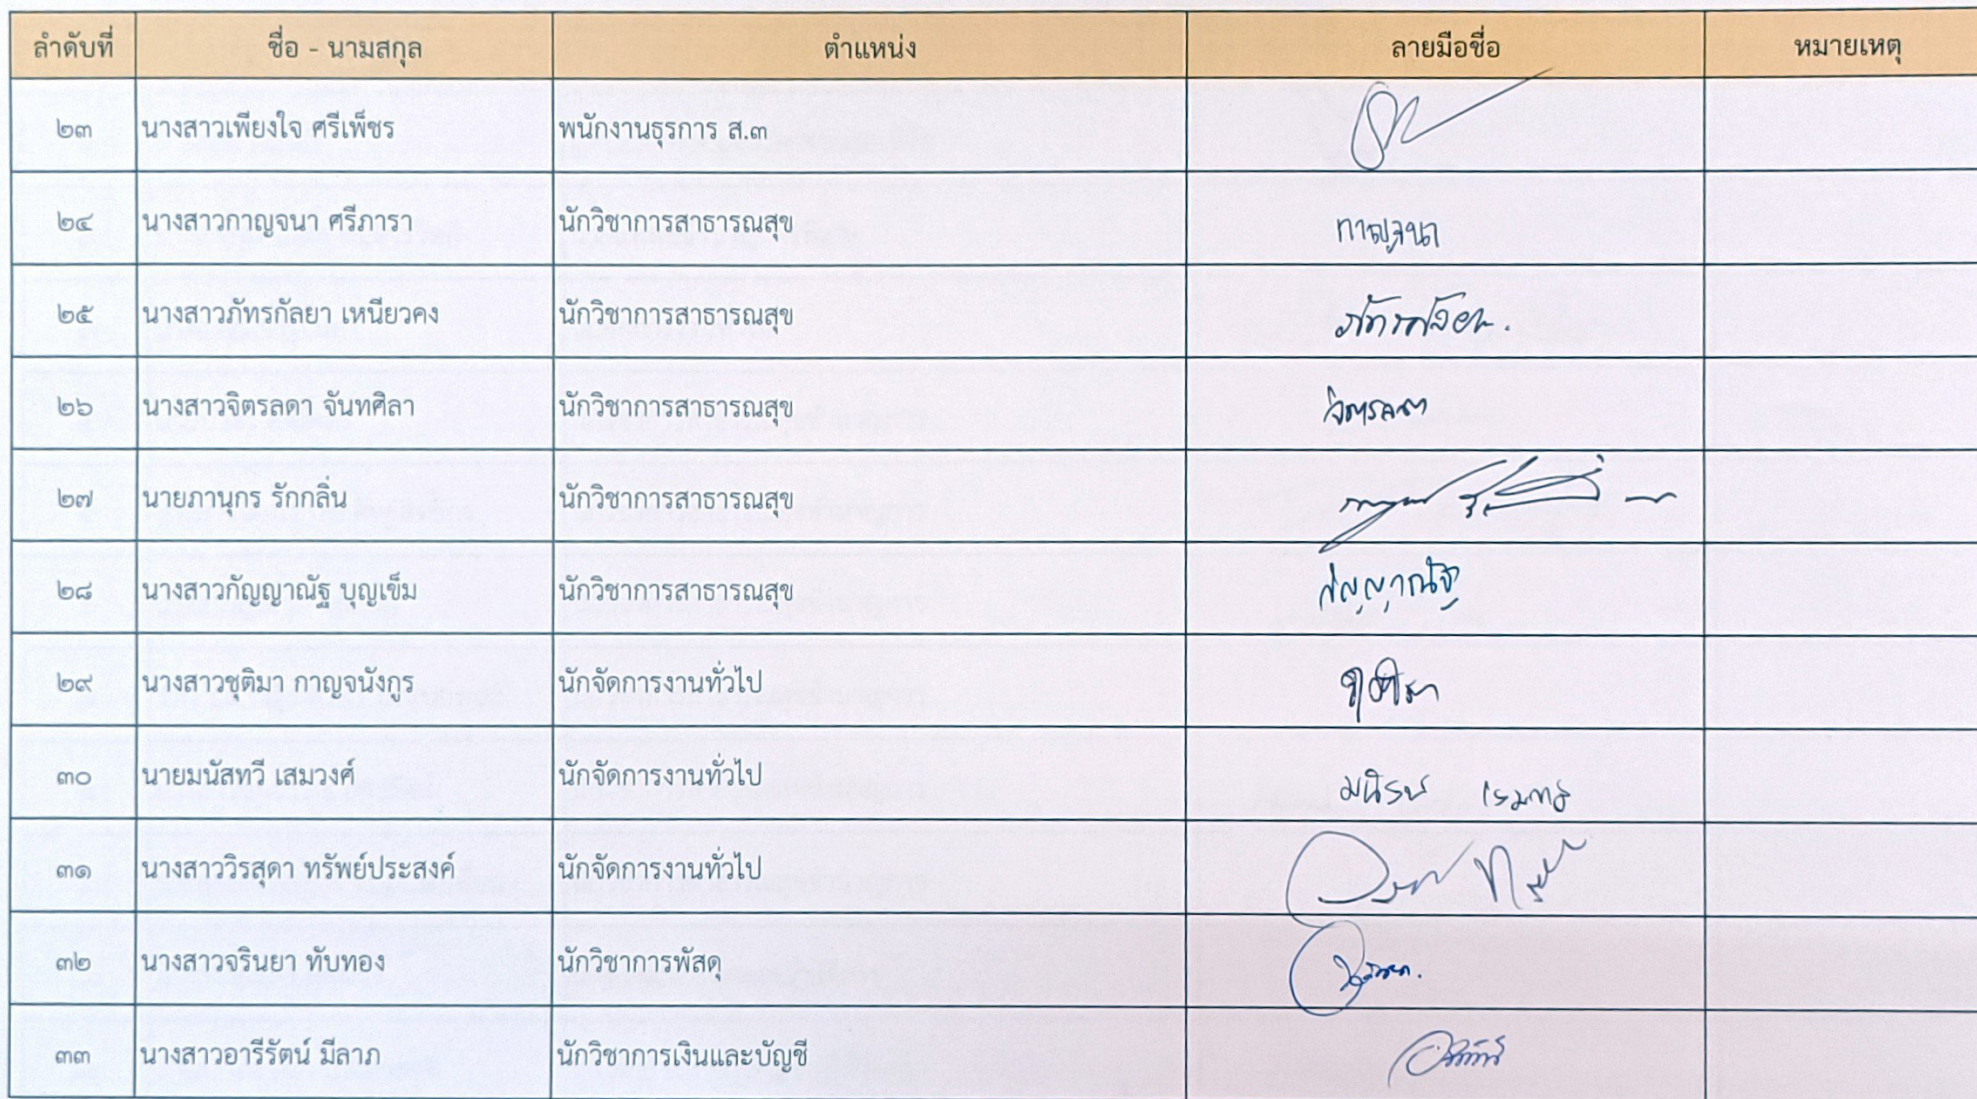 ลำดับที่ ชื่อ - นามสกุล ตำแหน่ง ลายมือชื่อ หมายเหตุ
๒๓ นางสาวเพียงใจ ศรีเพ็ชร พนักงานธุรการ ส.๓
๒๔ นางสาวกาญจนา ศรีภารา นักวิชาการสาธารณสุข กาญจนา
๒๕ นางสาวภัทรกัลยา เหนียวคง นักวิชาการสาธารณสุข ภัทรกัลยา.
๒๖ นางสาวจิตรลดา จันทศิลา นักวิชาการสาธารณสุข จิตรลดา
๒๗ นายภานุกร รักกลิ่น นักวิชาการสาธารณสุข
๒๘ นางสาวกัญญาณัฐ บุญเข็ม นักวิชาการสาธารณสุข กัญญาณัฐ
๒๙ นางสาวชุติมา กาญจนังกูร นักจัดการงานทั่วไป ชุติมา
๓๐ นายมนัสทวี เสมวงศ์ นักจัดการงานทั่วไป
๓๑ นางสาววิรสุดา ทรัพย์ประสงค์ นักจัดการงานทั่วไป
๓๒ นางสาวจรินยา ทับทอง นักวิชาการพัสดุ
๓๓ นางสาวอารีรัตน์ มีลาภ นักวิชาการเงินและบัญชี